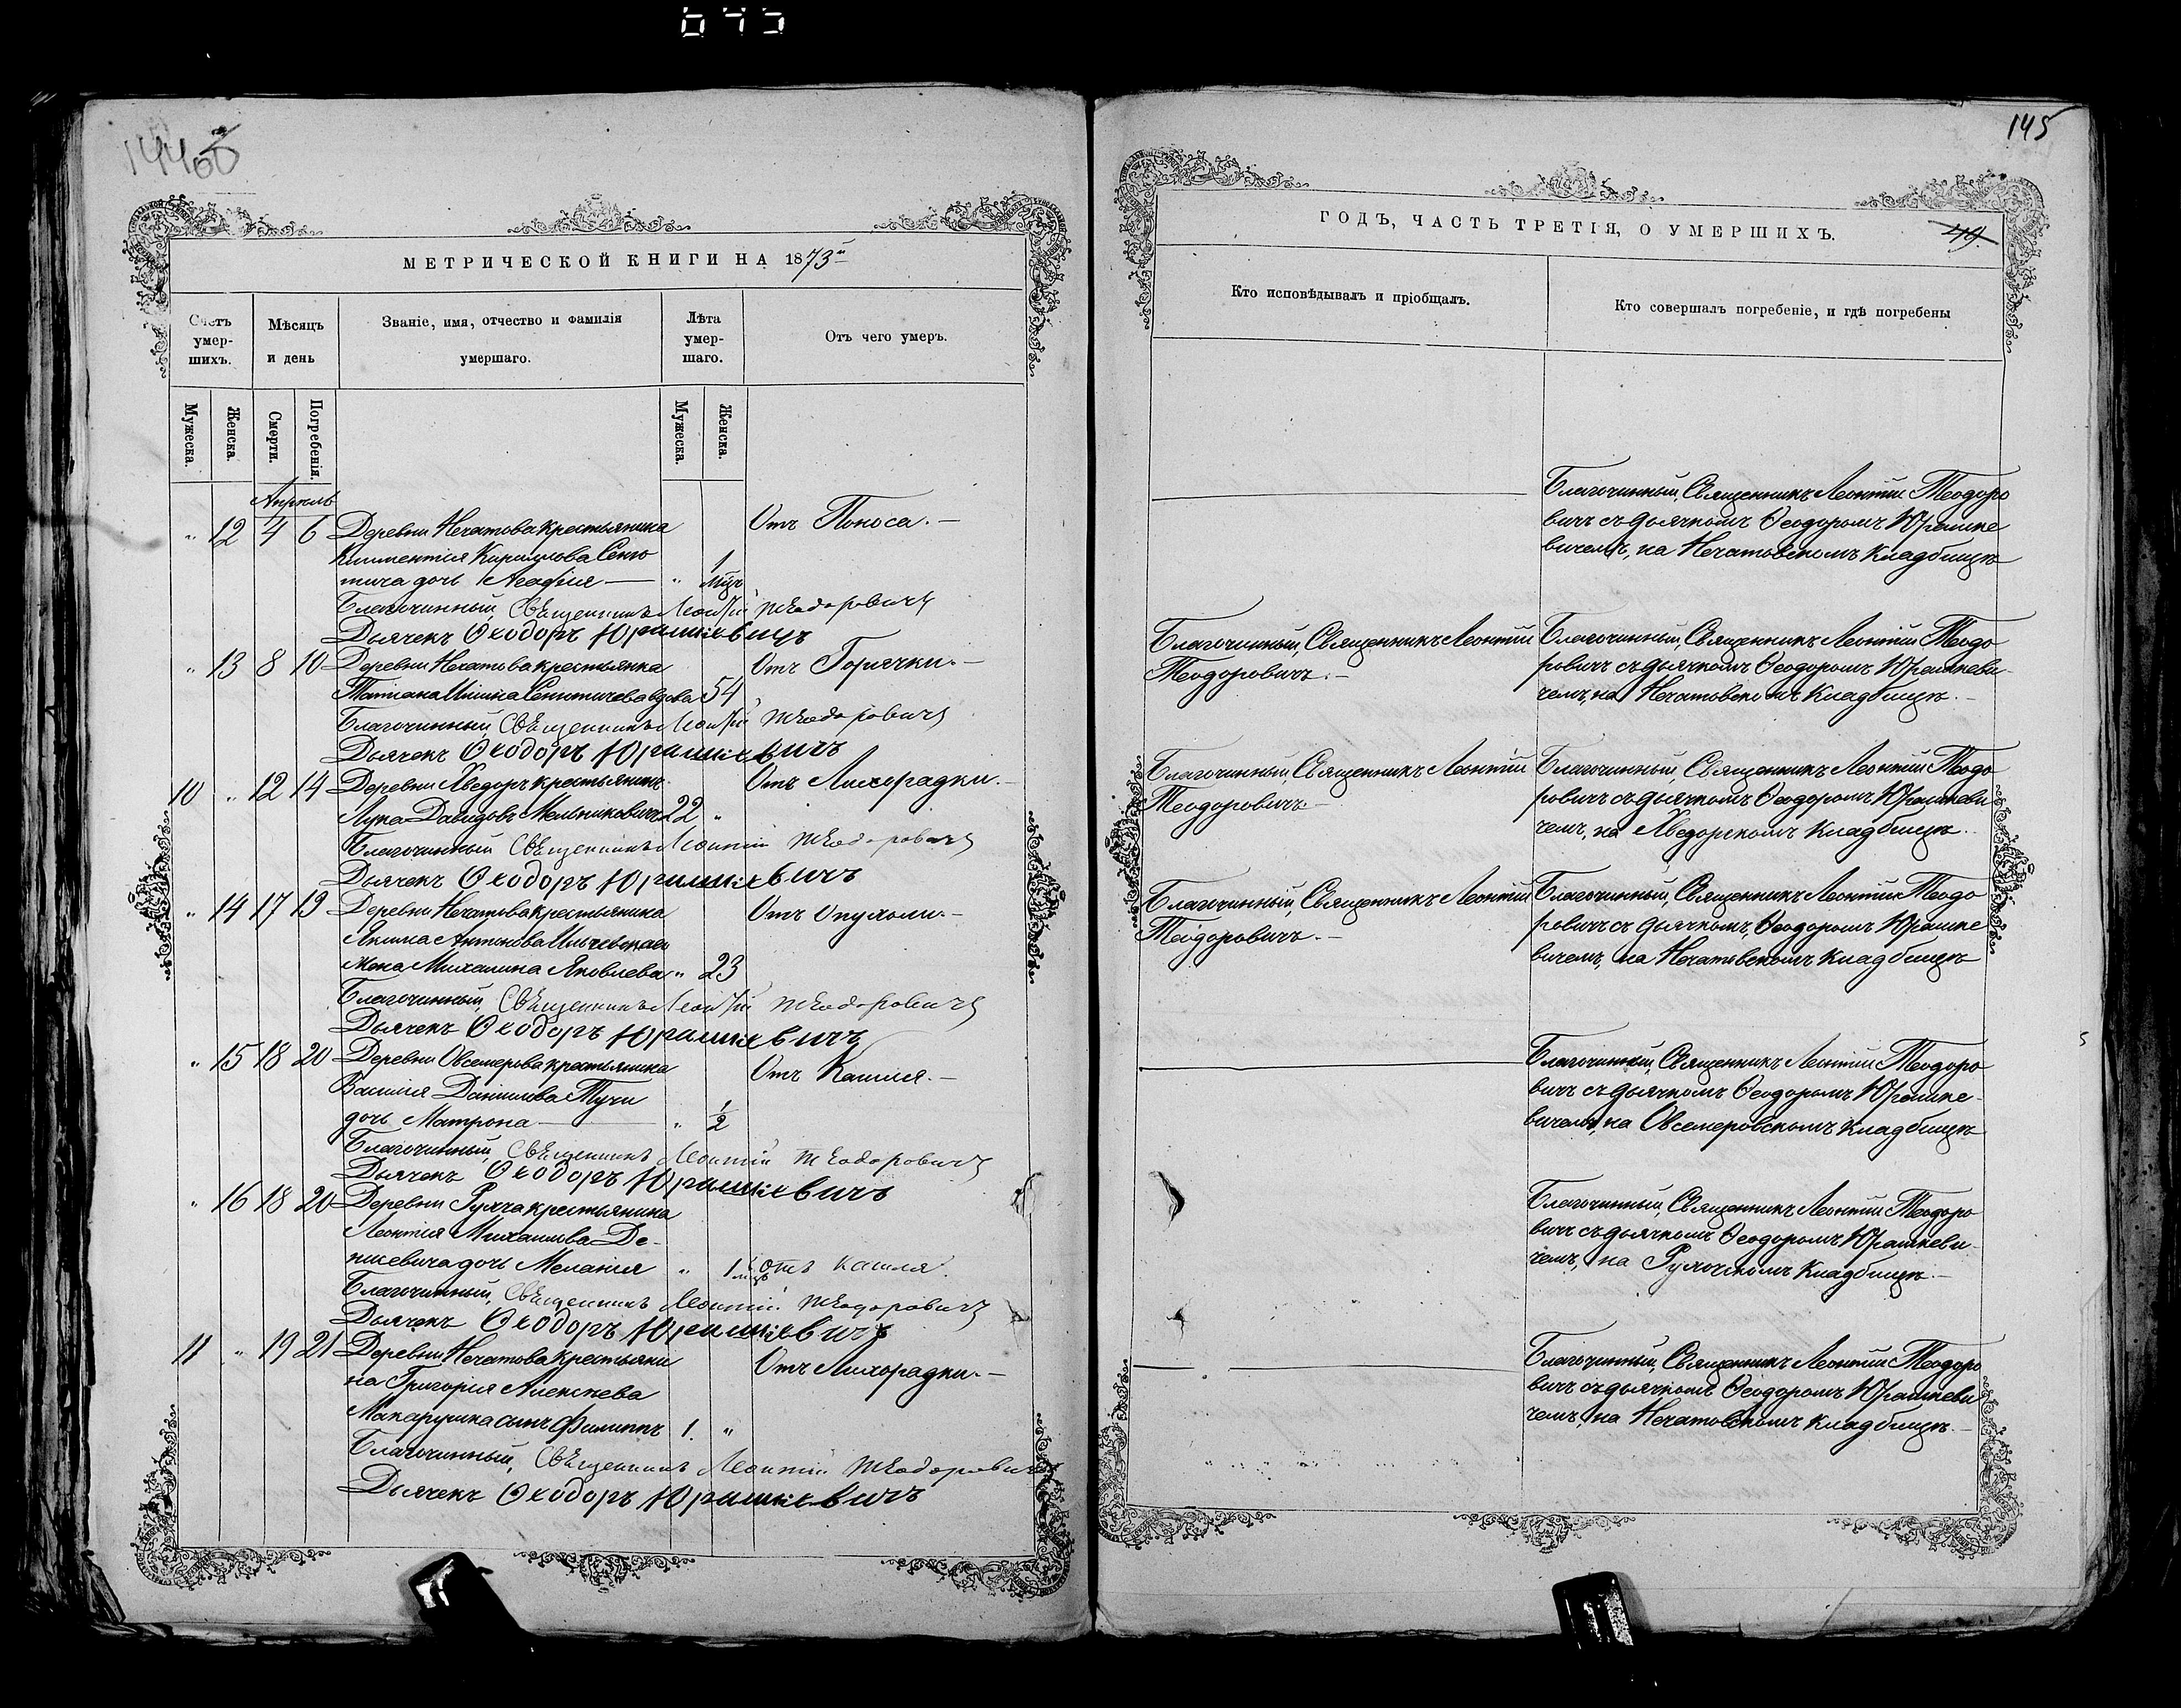 145
МЕТРИЧЕСКОЙ КНИГИ НА 1873й
Счетъ умершихъ.
Мѣсяцъ и день
Званіе, имя, отчество и фамилія умершаго.
Лѣта умершаго.
Отъ чего умеръ.
Мужеска.
Женска.
Смерти.
Погребенія.
Мужеска.
Женска.
Апрель
" 12 4 6 Деревни Нечатова крестьянина Отъ Поноса.
Климентія Кириллова Сеню
тича дочь Агафія — " 1 мцъ
Благочинный, Священникъ Леонтій Теодоровичъ
Дьячекъ Ѳеодоръ Юрашкевичъ
" 13 8 10 Деревни Нечатова крестьянка Отъ Горячки.
Татіана Ильина Сенютичева вдова 54
Благочинный, Священникъ Леонтій Теодоровичъ
Дьячекъ Ѳеодоръ Юрашкевичъ
10 " 12 14 Деревни Хведоръ крестьянинъ Отъ Лихорадки.
Лука Давидовъ Мельниковичъ 22 "
Благочинный Священникъ Леонтій Теодоровичъ
Дьячекъ Ѳеодоръ Юрашкевичъ
" 14 17 19 Деревни Нечатова крестьянина Отъ Опухоли.
Якима Антонова
жена Михалина Яковлева " 23
Благочинный, Священникъ Леонтій Теодоровичъ
Дьячекъ Ѳеодоръ Юрашкевичъ
" 15 18 20 Деревни Овсемерова крестьянина Отъ Кашля.
Василія Даниилова Тучи
дочь Матрона — " 1/2
Благочинный, Священникъ Леонтій Теодоровичъ
Дьячекъ Ѳеодоръ Юрашкевичъ
" 16 18 20 Деревни Рухча крестьянина
Леонтія Михаилова Де-
нисевича дочь Меланія " 1 мцъ Отъ Кашля.
Благочинный, Священникъ Леонтій Теодоровичъ
Дьячекъ Ѳеодоръ Юрашкевичъ
11 " 19 21 Деревни Нечатова крестьяни Отъ Лихорадки.
на Григорія Алексѣева
Макарушка сынъ Филиппъ 1. "
Благочинный, Священникъ Леонтій Теодоровичъ
Дьячекъ Ѳеодоръ Юрашкевичъ
ГОДЪ, ЧАСТЬ ТРЕТІЯ, О УМЕРШИХЪ.
Кто исповѣдывалъ и пріобщалъ.
Кто совершалъ погребеніе, и гдѣ погребены
Благочинный, Священникъ Леонтій Теодоро
вичъ съ дьячкомъ Ѳеодоромъ Юрашке
вичемъ, на Нечатовскомъ кладбищѣ
Благочинный, Священникъ Леонтій
Теодоровичъ.
Благочинный, Священникъ Леонтій Теодо
ровичъ съ дьячкомъ Ѳеодоромъ Юрашкеви
чемъ, на Нечатовскомъ кладбищѣ.
Благочинный Священникъ Леонтій
Теодоровичъ
Благочинный, Священникъ Леонтій Теодо
ровичъ съ дьячкомъ Ѳеодоромъ Юрашкеви
чемъ, на Хведорскомъ кладбищѣ.
Благочинный, Священникъ Леонтій
Теодоровичъ.
Благочинный, Священникъ Леонтій Теодо
ровичъ съ дьячкомъ, Ѳеодоромъ Юрашке
вичемъ, на Нечатовскомъ кладбищѣ
Благочинный, Священникъ Леонтій Теодоро
вичъ съ дьячкомъ Ѳеодоромъ Юрашке-
вичемъ, на Овсемеровскомъ кладбищѣ
Благочинный, Священникъ Леонтій Теодоро
вичъ съ дьячкомъ Ѳеодоромъ Юрашкеви
чемъ, на Рухочскомъ кладбищѣ.
Благочинный, Священникъ Леонтій Теодоро
вичъ съ дьячкомъ Ѳеодоромъ Юрашкеви
чемъ, на Нечатовскомъ кладбищѣ.